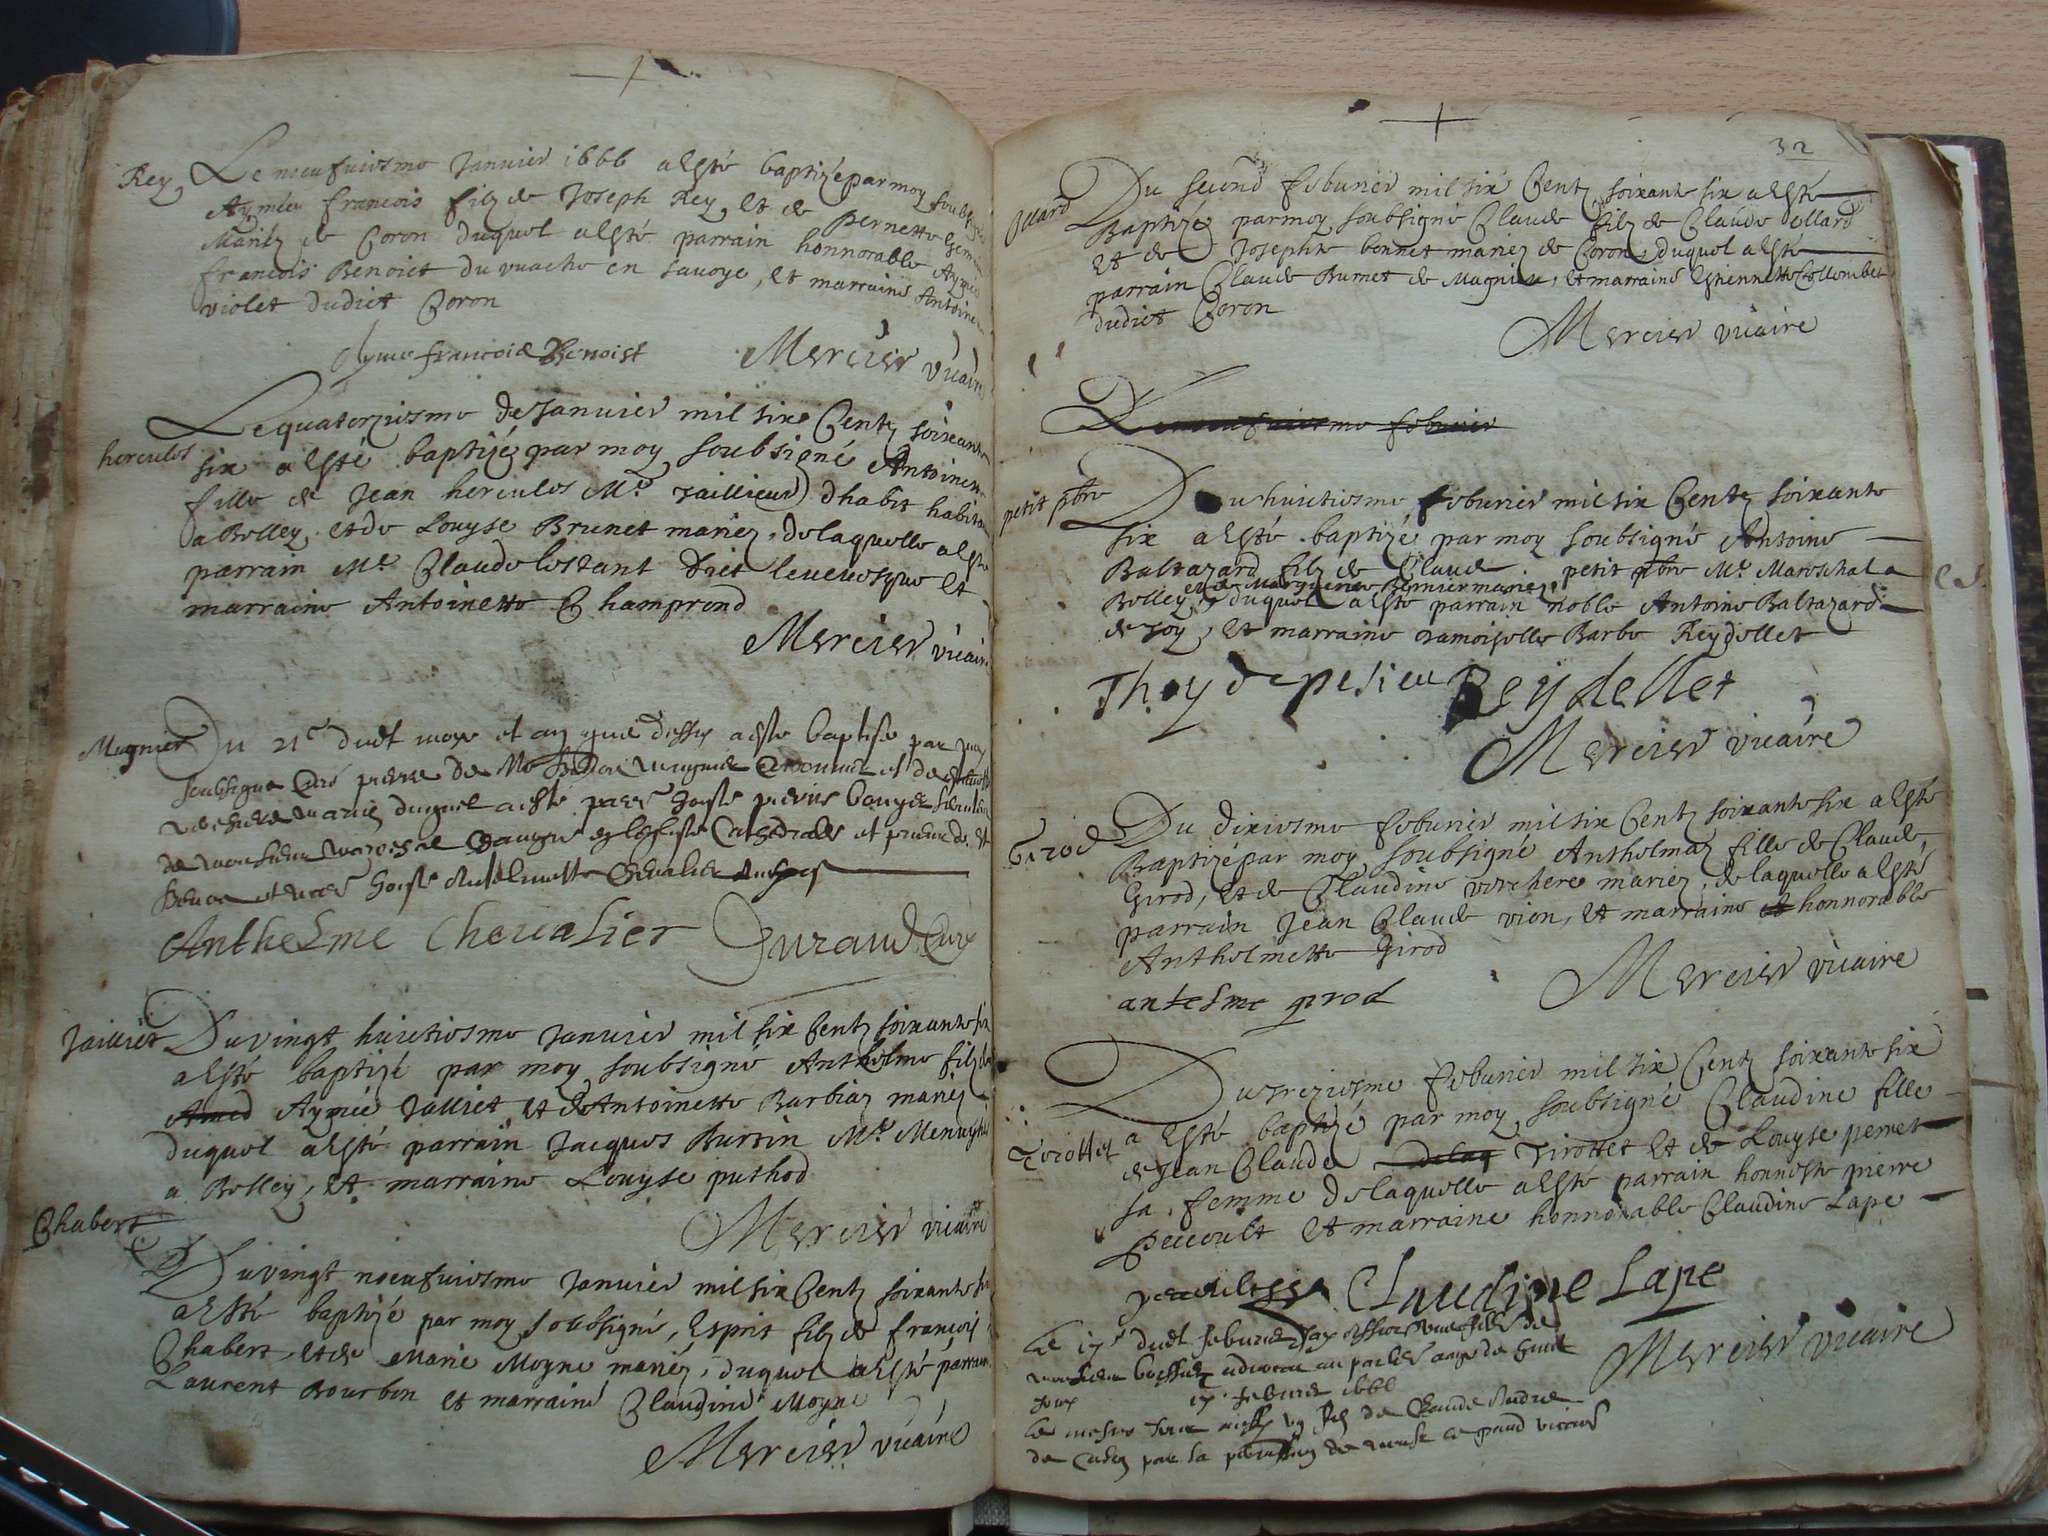 Rey
Le neufuiesme Januier 1666 a esté baptizé par moy soubsigné
Aymée francois filz de Joseph Rey, et de Pernette
Mariez de Coron duquel a esté parrain honnorable Aymée
francois Benoict du vuache en sauoye, et marraine Antoine
violet dudict Coron
Ayme francois Benoist Mercier vicaire
hercules
Le quatorziesme de Januier mil six Centz soixante
six a esté baptizé par moy soubsigné Antoinette
fille de Jean hercules Me Taillieur dhabit habitant
a Belley, et de Louyse Brunet mariez, de laquelle a esté
parrain Me Claude lostant dict leuesque et
marraine Antoinette Champrond
Mercier vicaire
Mugnier
Du 21e dudt moys et an que dessus a esté baptisé par moy
soubsigné Curé pierre de mugnier et de
mariez duquel a esté parr honeste
de monsieur eglise Cathedrale et
et marr honeste Cheualier
Anthelme Cheualier Guraud Curé
Jailliet
Du vingt huictiesme Januier mil six Centz soixante six
a esté baptizé par moy soubsigné Anthelme filz de
Aymée Jalliet et de Antoinette Barbiaz mariez
duquel a esté parrain Jacques Burtin Me Menuysier
a Belley, et marraine Louyse puthod
Mercier vicaire
Chabert
Du vingt neufuiesme Januier mil six Centz soixante six
a esté baptizé par moy soubsigné, Esprit filz de francois
Chabert, et de Marie Moyne mariez, duquel a esté parrain
Laurent Bourbon et marraine Claudine Moyne
Mercier vicaire
32
Ollard
Du second feburier mil six Centz soixante six a esté
Baptizé par moy soubsigné Claude filz de Claude Ollard
et de Josephte bonnet mariez de Coron, duquel a esté
parrain Claude Burnet de Magnieu, et marraine Estiennette Collombet
dudict Coron
Mercier vicaire
Le neufuiesme feburier
petit pbre
Du huictiesme feburier mil six Centz soixante
six a esté baptizé par moy soubsigné Antoine
Baltazard filz de Claude petit pbre Me Mareschal a
et de Marguerite Bernier mariez
Belley, duquel a esté parrain noble Antoine Baltazard
de Toy, et marraine Damoiselle Barbe Reydellet
Thoy de pesieu Reydellet
Mercier vicaire
Girod
Du dixiesme feburier mil six Centz soixante six a esté
Baptizé par moy soubsigné Anthelmaz fille de Claude
Girod, et de Claudine verchere mariez, de laquelle a esté
parrain Jean Claude vion, et marraine et honnorable
Anthelmette Girod
Mercier vicaire
antesme girod
Tirottet
Du treziesme feburier mil six Centz soixante six
a esté baptizé par moy soubsigné Claudine fille
de Jean Claude Tirottet et de Louyse pernet
sa femme de laquelle a esté parrain honneste pierre
peccoult et marraine honnorable Claudine Lape
Claudine Lape
Mercier vicaire
Le 17e dudt feburier
monsieur aduocat au
jour 17e feburier 1666
Le mesme jour un filz de Claude
de par la permission de grand vicaire